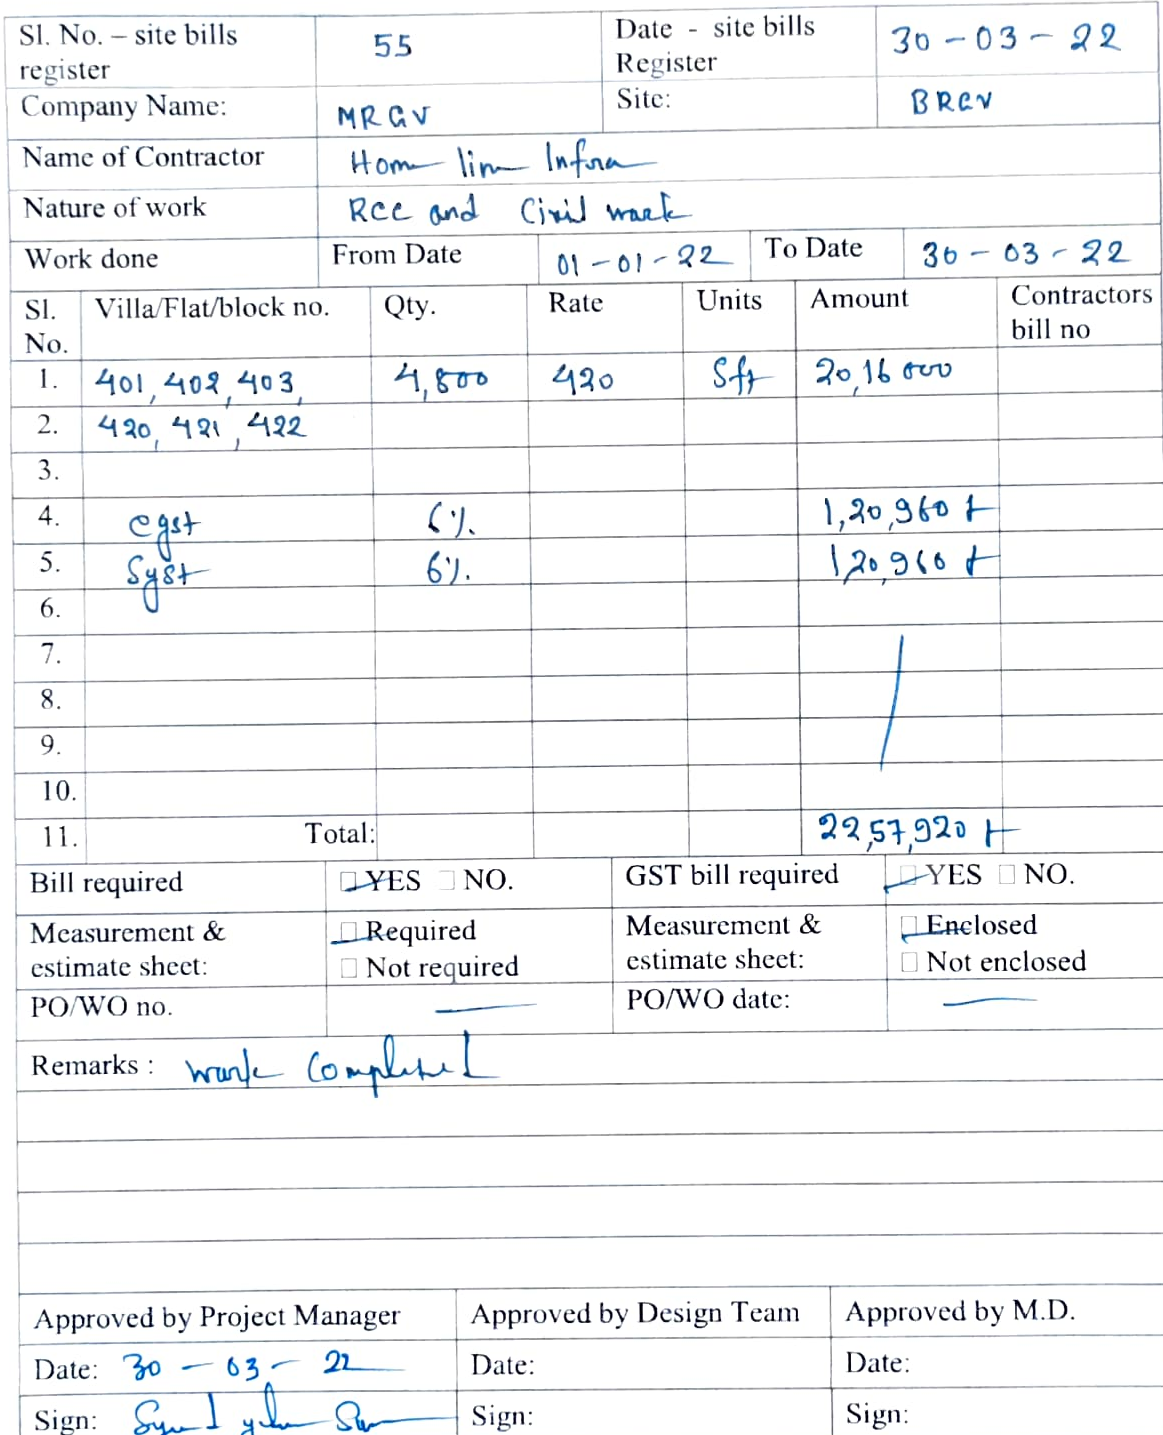 Sl. No. – site bills register 55 Date - site bills Register 30-03-22
Company Name: MRGV Site: BRGV
Name of Contractor Hom lin Infra
Nature of work RCC and Civil work
Work done From Date 01-01-22 To Date 30-03-22
Sl. No. Villa/Flat/block no. Qty. Rate Units Amount Contractors bill no
1. 401, 402, 403, 4,800 420 Sft 20,16 000
2. 420, 421, 422
3.
4. cgst 6%. 1,20,960
5. Sgst 6%. 1,20,960
6.
7.
8.
9.
10.
11. Total: 22,57,920
Bill required YES NO. GST bill required YES NO.
Measurement & estimate sheet: Required Not required Measurement & estimate sheet: Enclosed Not enclosed
PO/WO no. — PO/WO date: —
Remarks : work Completed
Approved by Project Manager Approved by Design Team Approved by M.D.
Date: 30-03-22 Date: Date:
Sign: Sign: Sign: